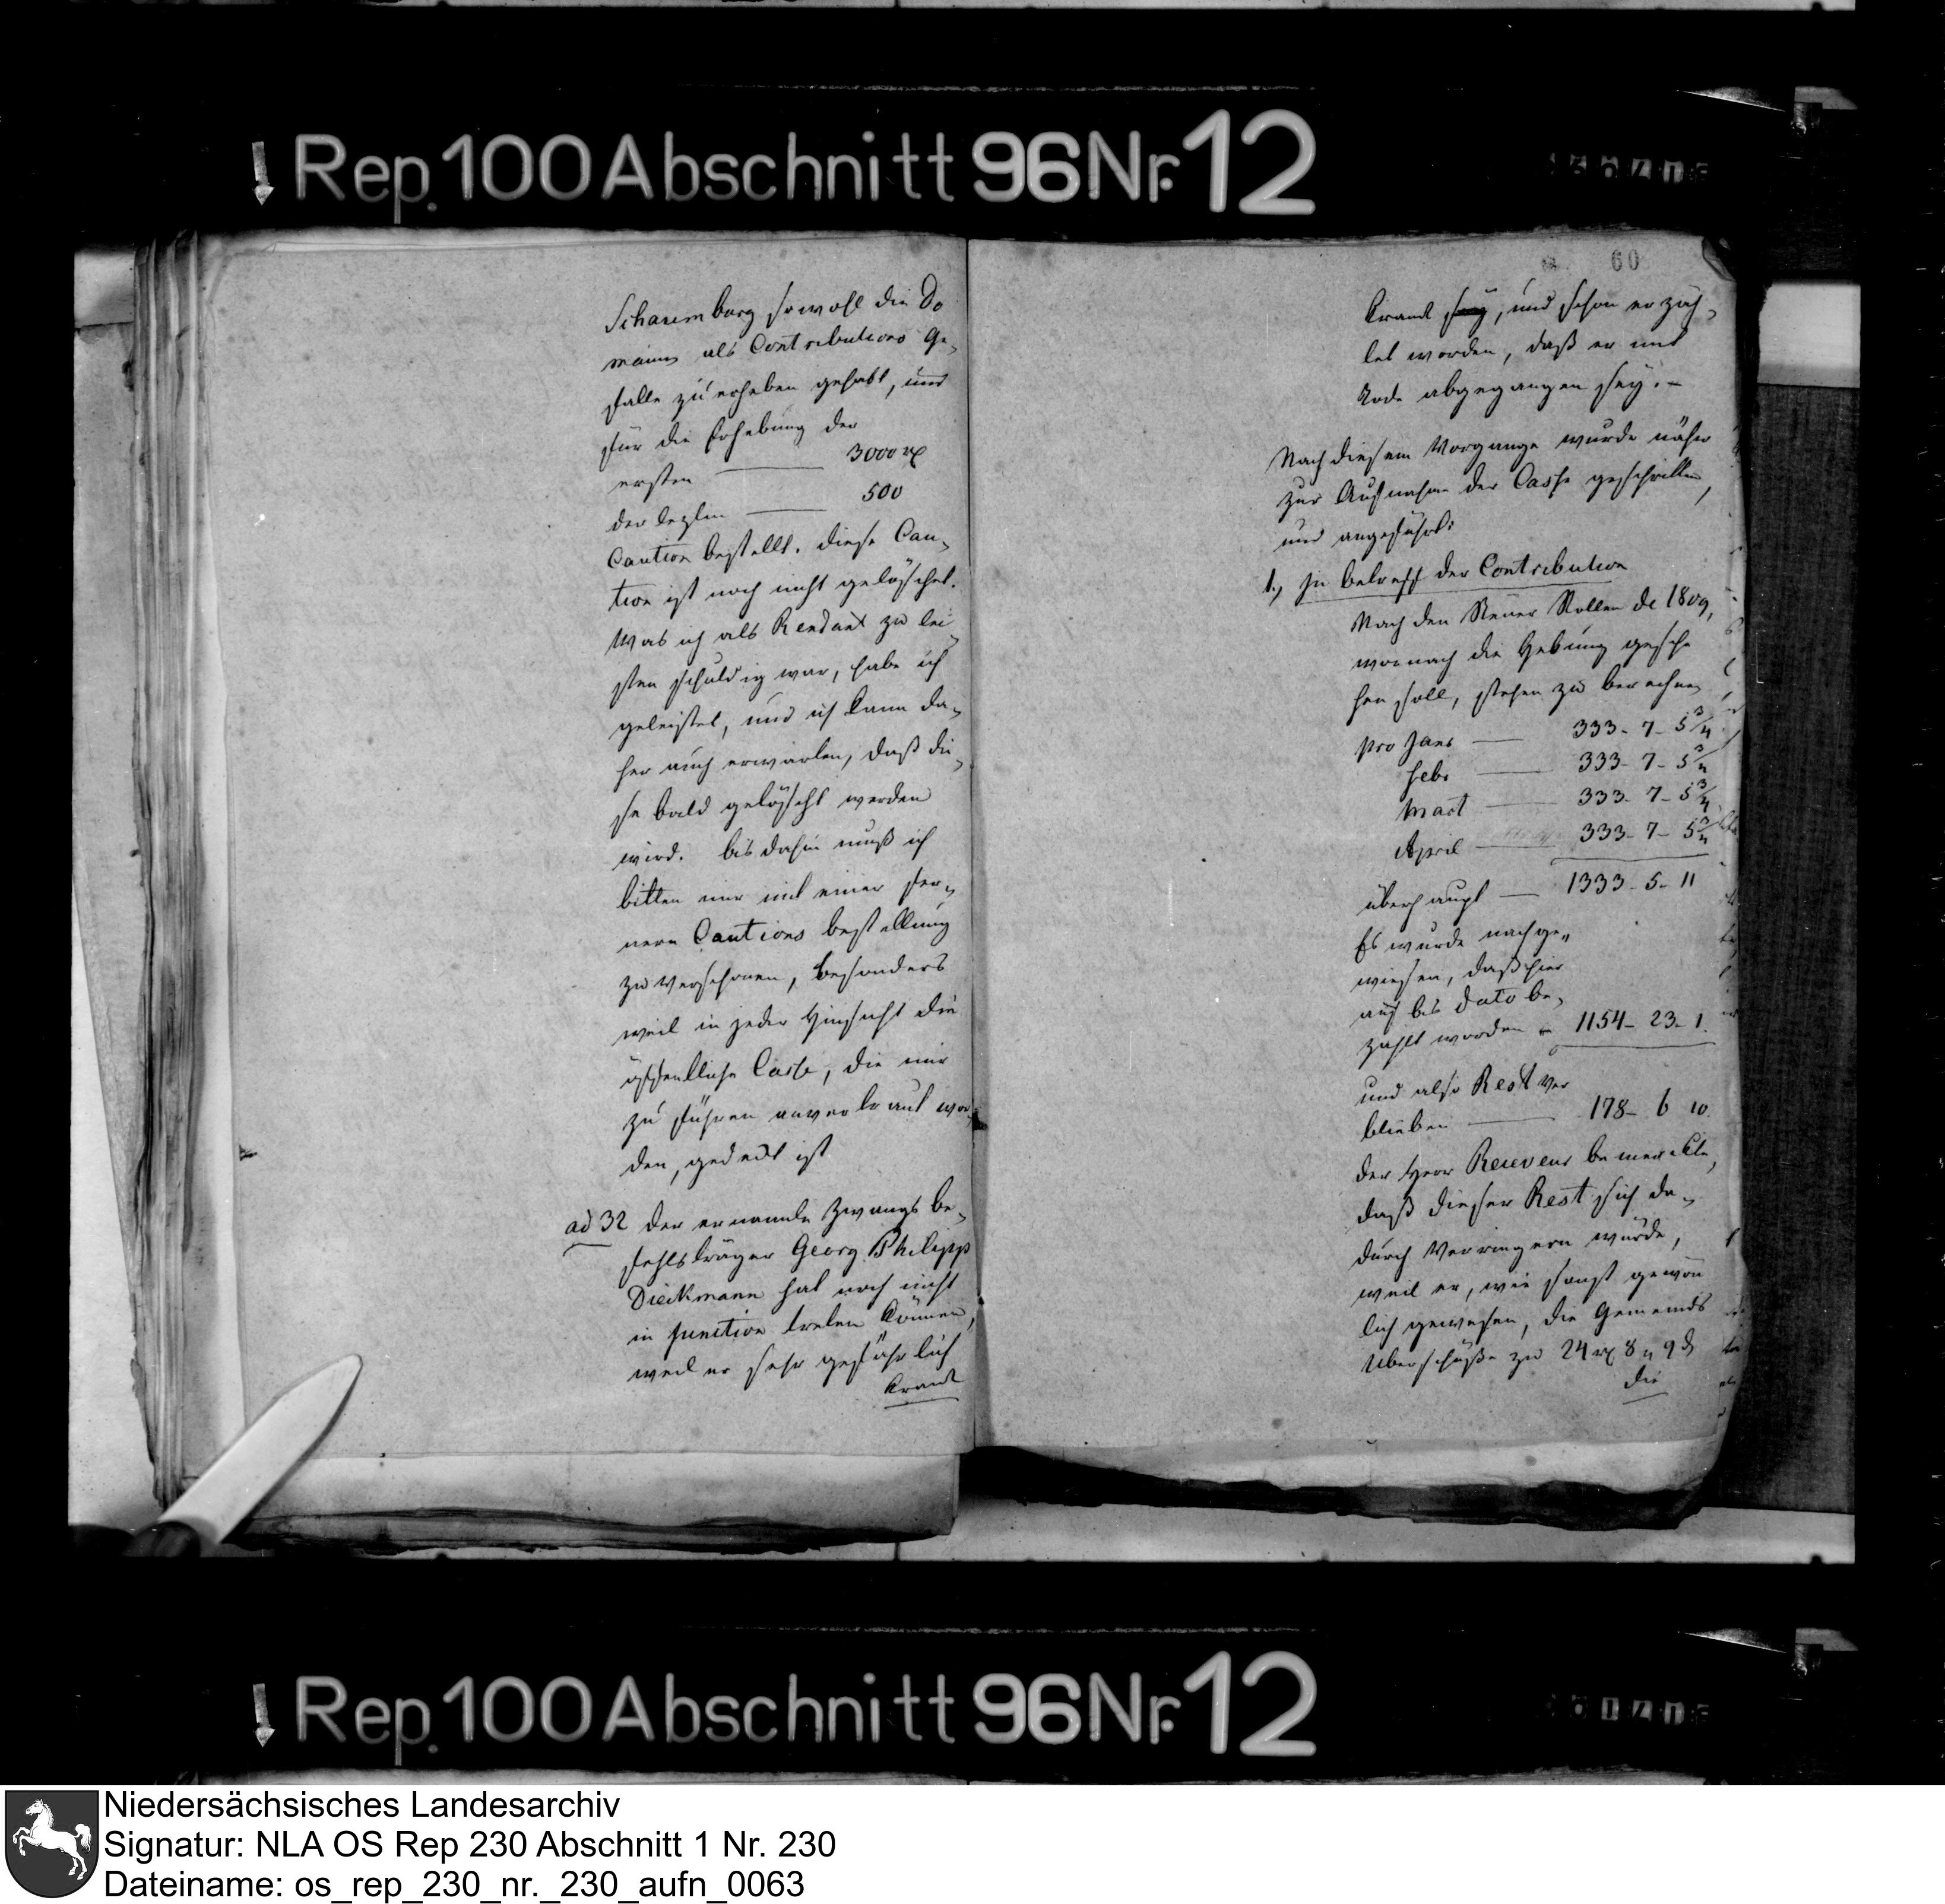 Rep. 100 Abschnitt 96 Nr. 12
Scharemburg sowohl die Do
mainen als Contributions Ge,
fälle zu erheben gehabt, und
für die Erhebung der
ersten 3000 rp
der lezten 500
Caution bestellt. diese Cau,
tion ist noch nicht gelöschet.
Was ich als Rendant zu lei
sten schuldig war, habe ich
geleistet, und ich kann da,
her auch erwarten, daß die,
se bald gelöscht werden
wird. bis dahin muß ich
bitten mir mit einer fer,
nern Cautions bestellung
zu verschonen, besonders
weil in jeder Hinsicht die
öffentliche Casse, die mir
zu führen anvertraut wor,
den, gedeckt ist
ad 32 der ernannte Zwangs be,
fehlsträger Georg Philipp
Dieckmann hat noch nicht
in function treten können,
weil er sehr gefährlich
krank
60
krank sey, und schon erzäh,
let worden, daß er mit
Tode abgegangen sey. –
Nach diesem Vorgange wurde näher
zur Aufnahme der Casse geschritten,
und angeführt:
1., In betreff der Contribution
Nach den Steuer Rollen de 1809,
wornach die Hebung gesche
hen soll, stehen zu berechnen
pro Janr 333 - 7 - 5 3/4
Febr 333 - 7 - 5 3/4
Mart 333 - 7 - 5 3/4
April 333 - 7 - 5 3/4
überhaupt 1333 - 5 - 11
Es wurde nachge„
wiesen, daß hier
auf bis dato be,
zahlt worden 1154 - 23 - 1.
und also Rest ver
blieben 178 - 6 10.
der Herr Receveur bemerckte,
daß dieser Rest sich da,
durch verringern würde,
weil er, wie sonst gewön
lich gewesen, die Gemeinds
Uberschüße zu 24 rp 8 „ 9 d
die
Rep. 100 Abschnitt 96 Nr. 12
Niedersächsisches Landesarchiv
Signatur: NLA OS Rep 230 Abschnitt 1 Nr. 230
Dateiname: os_rep_230_nr._230_aufn_0063